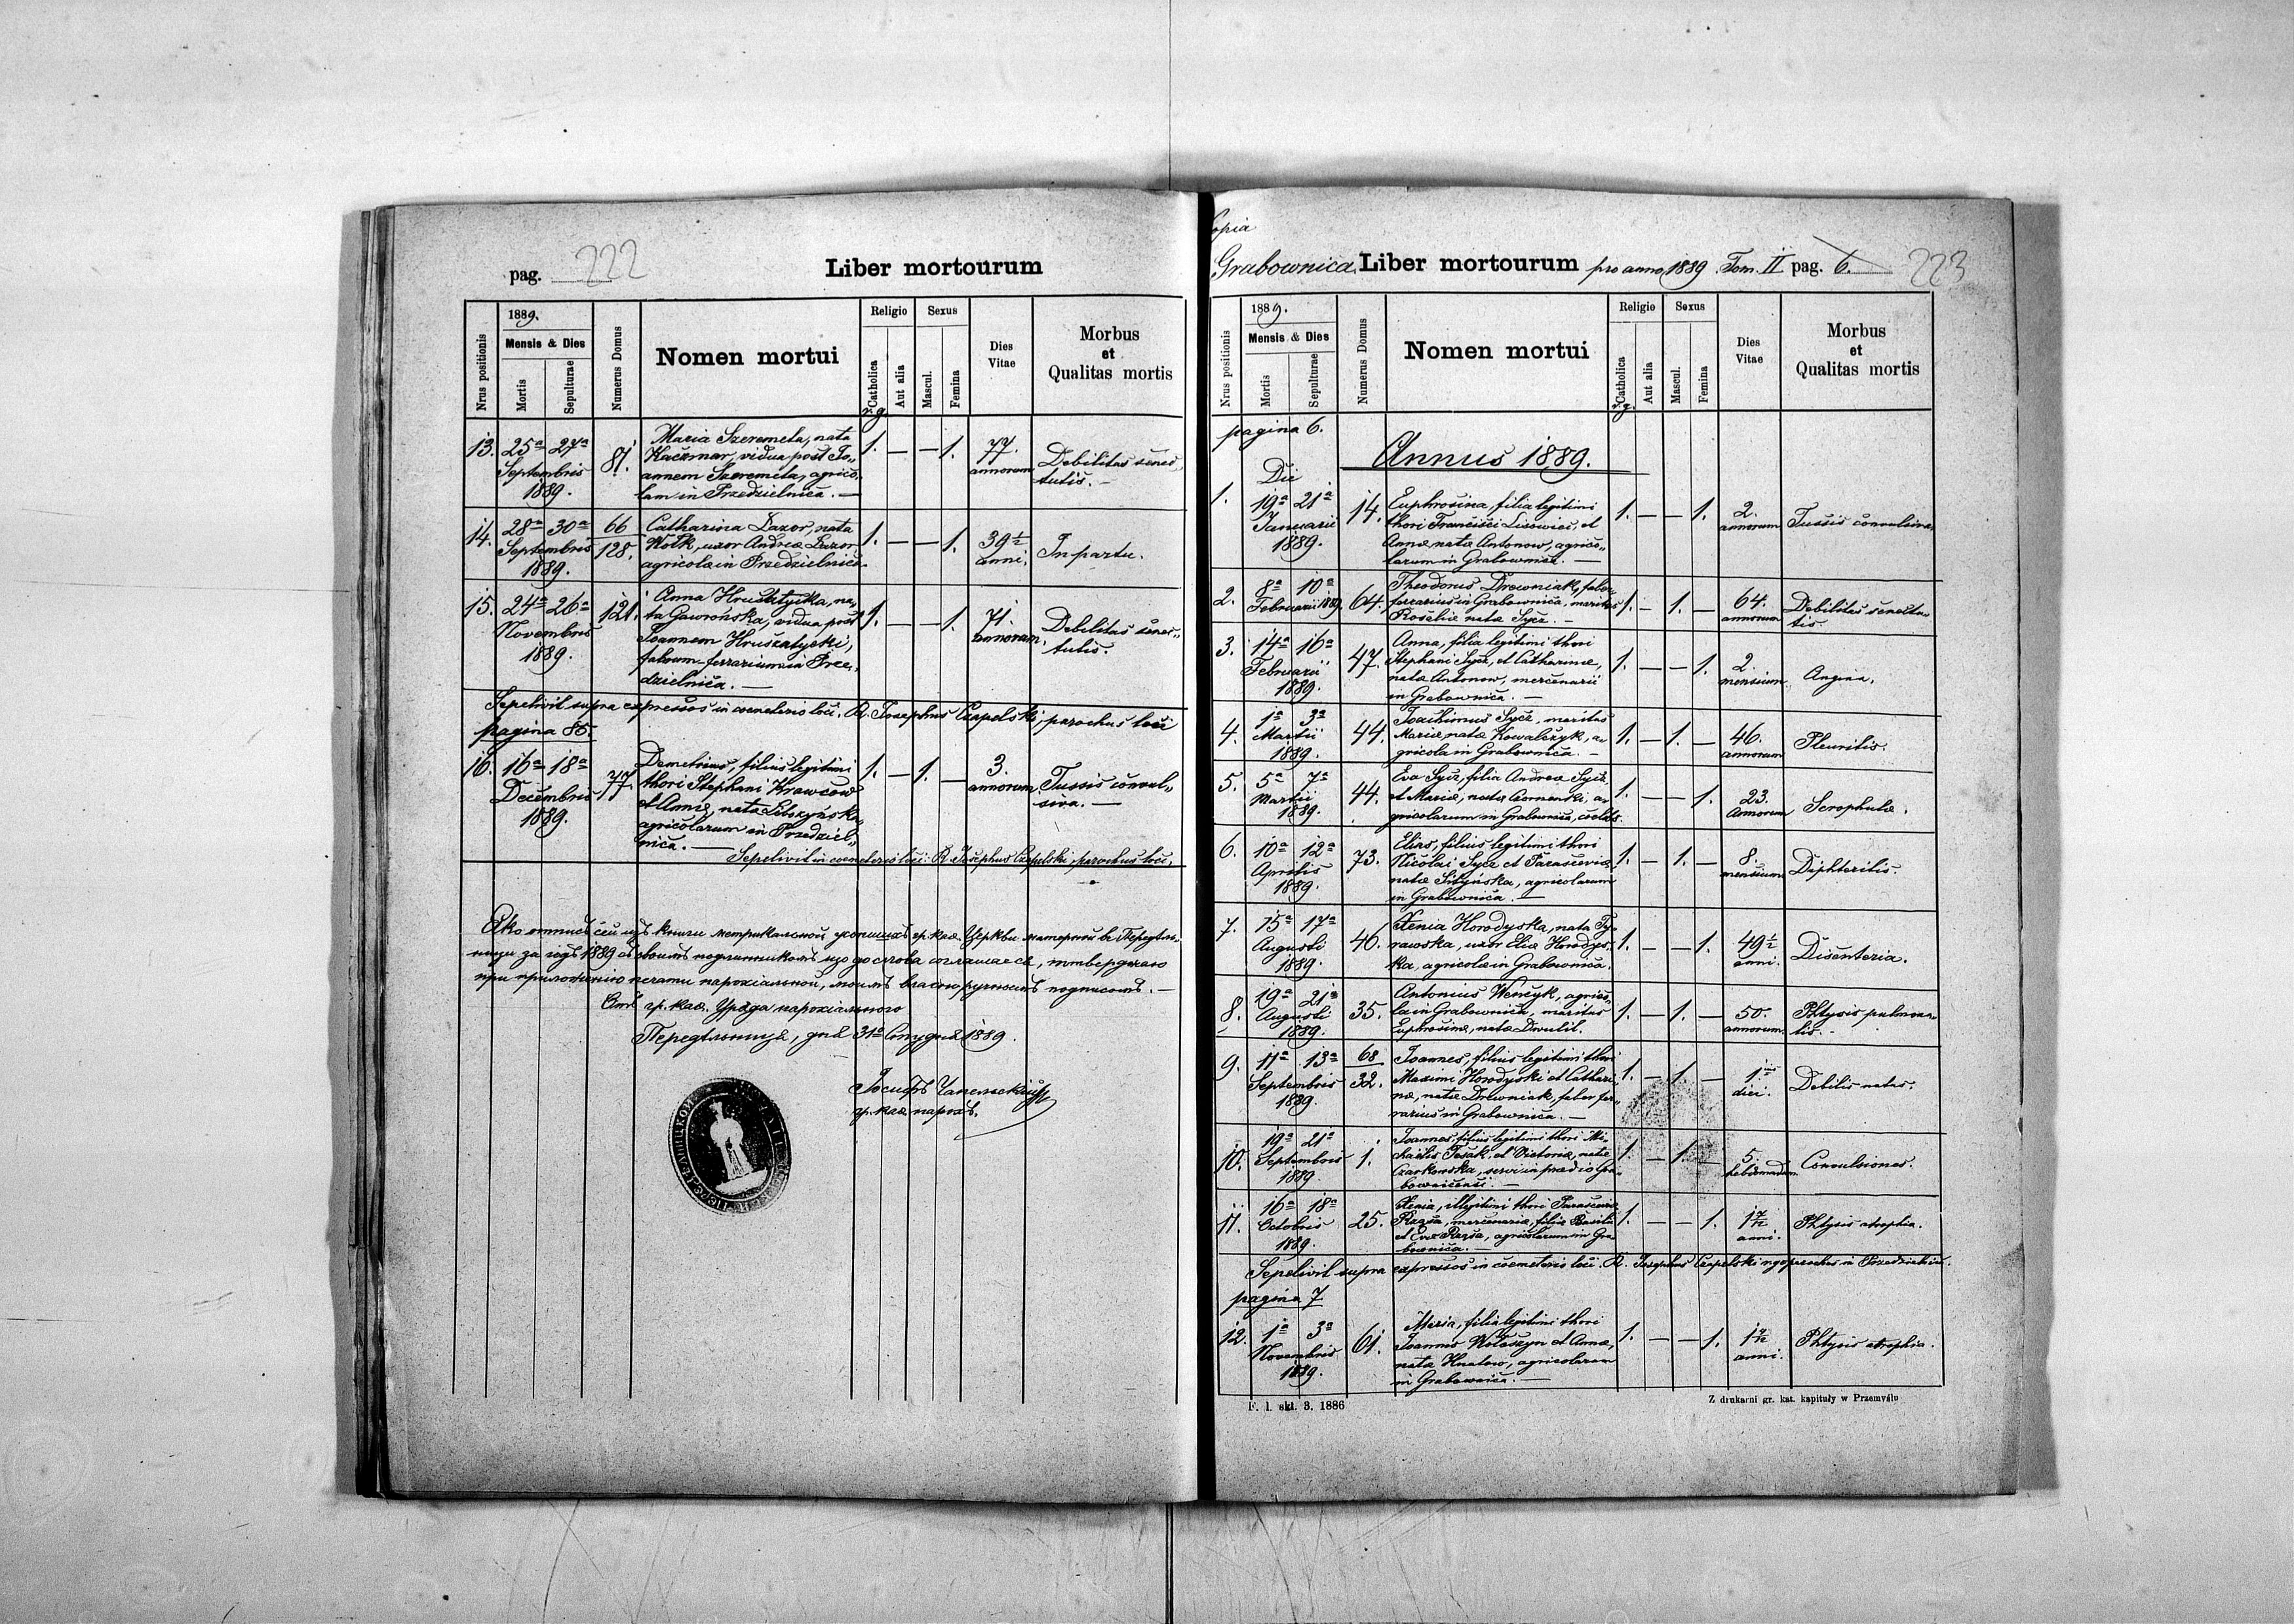 pag. 222
Liber mortourum
Nrus positionis
1889.
Mensis & Dies
Mortis
Sepulturae
Numerus Domus
Nomen mortui
Religio
Catholica
r. g.
Aut alia
Sexus
Mascul.
Femina
Dies
Vitae
Morbus
et
Qualitas mortis
13. 25a 27a Septembris 1889. 81.
Maria Szeremeta, nata
Kaczmar, vidua post Jo„
annem Szeremeta, agrico„
lam in Przedzielnica. —
1. — — 1. 77. annorum
Debilitas senec„
tutis. —
14. 28a 30a Septembris 1889. 66 128.
Catharina Lazor, nata
Wolk, uxor Andreæ Lazor
agricolæ in Przedzielnica
1. — — 1. 39½ anni.
In partu.
15. 24a 26a Novembris 1889. 121.
Anna Hruszatycka, na„
ta Gawrońska, vidua post
Joannem Hruszatycki,
fabrum-ferrarium in Prze„
dzielnica. —
1. — — 1. 71. annorum
Debilitas senec„
tutis.
Sepelivit supra expressos in coemeterio loci. R. Josephus Czapelski, parochus loci
pagina 85.
16. 16a 18a Decembris 1889. 77.
Demetrius, filius legitimi
thori Stephani Krawcow
et Annæ, nata
agricolarum in Przedziel„
nica. —
1. — 1. — 3. annorum
Tussis convul„
siva. —
Sepelivit in coemeterio loci: R. Josephus Czapelski, parochus loci.
за годъ 1889
Отъ гр. каѳ. Уряда парохіального
31го Студня 1889.
Іосифъ Чапельскій
гр. каѳ. парохъ.
Copia
Grabownica Liber mortourum pro anno 1889. Tom. II pag. 6. 223
Nrus positionis
1889.
Mensis & Dies
Mortis
Sepulturae
Numerus Domus
Nomen mortui
Religio
Catholica
r. g.
Aut alia
Sexus
Mascul.
Femina
Dies
Vitae
Morbus
et
Qualitas mortis
pagina 6.
Annus 1889.
Die
1. 19a 21a Januarii 1889. 14.
Euphrosina filia legitimi
thori Francisci Lisowicz et
Annæ natæ Antonow, agrico„
larum in Grabownica. —
1. — — 1. 2. annorum
Tussis convulsiva
2. 8a 10a Februarii 1889. 64.
Theodorus Drewniak, faber
ferrarius in Grabownica, maritus
Rosaliæ natæ Sycz. —
1. — 1. — 64. annorum
Debilitas senectu„
tis.
3. 14a 16a Februarii 1889. 47.
Anna, filia legitimi thori
Stephani Sycz, et Catharinæ,
natæ Antonow, mercenarii
in Grabownica. —
1. — — 1. 2. mensium
Angina.
4. 1a 3a Martii 1889. 44.
Joachimus Sycz, maritus
Mariæ natæ Kowalczyk, a„
gricola in Grabownica. —
1. — 1. — 46. annorum
Pleuritis.
5. 5a 7a Martii 1889. 44.
Eva Sycz, filia Andreæ Sycz
et Mariæ, natæ
agricolarum in Grabownica,
1. — — 1. 23. Annorum
Scrophulæ.
6. 10a 12a Aprilis 1889. 73.
Elias, filius legitimi thori
Nicolai Sycz et Parasceviæ
natæ Sityńska, agricolarum
in Grabownica. —
1. — 1. — 8. mensium
Diphteritis.
7. 15a 17a Augusti 1889. 46.
Xenia Horodyska, nata Ty„
rawska, uxor Eliæ Horodys„
ka, agricolæ in Grabownica.
1. — — 1. 49½ anni.
Disenteria.
8. 19a 21a Augusti 1889. 35.
Antonius Wencyk, agrico„
la in Grabownica, maritus
Euphrosinæ, natæ Dwulit.
1. — 1. — 50. annorum.
Phtysis pulmona„
lis. —
9. 11a 13a Septembris 1889. 68 32.
Joannes, filius legitimi thori
Maximi Horodyski et Cathari„
næ, natæ Drewniak, faber fer„
rarius in Grabownica. —
1. — 1. — 1. diei.
Debilis natus.
10. 19a 21a Septembris 1889. 1.
Joannes, filius legitimi thori Mi„
chaelis Tesak, et Victoriæ, natæ
Czarkowska, servi in prædio Gra„
bownicensi. —
1. — 1. — 5. hebdomadum
Convulsiones.
11. 16a 18a Octobris 1889. 25.
Xenia, illegitimi thori Parasceviæ
mercenaria, filiæ Basilii
et Evæ agricolarum in Gra„
bownica. —
1. — — 1. anni.
Phtysis atrophia.
Sepelivit supra expressos in coemeterio loci. R. Josephus Czapelski parochus in Przedzielnica.
pagina 7
12. 1a 3a Novembris 1889. 61.
Maria, filia legitimi thori
Joannis Wołoszyn et Annæ,
natæ Hnatow, agricolarum
in Grabownica. —
1. — — 1. anni.
Phtysis atrophia.
F. l. skł. 3. 1886
Z drukarni gr. kat. kapituły w Przemyślu